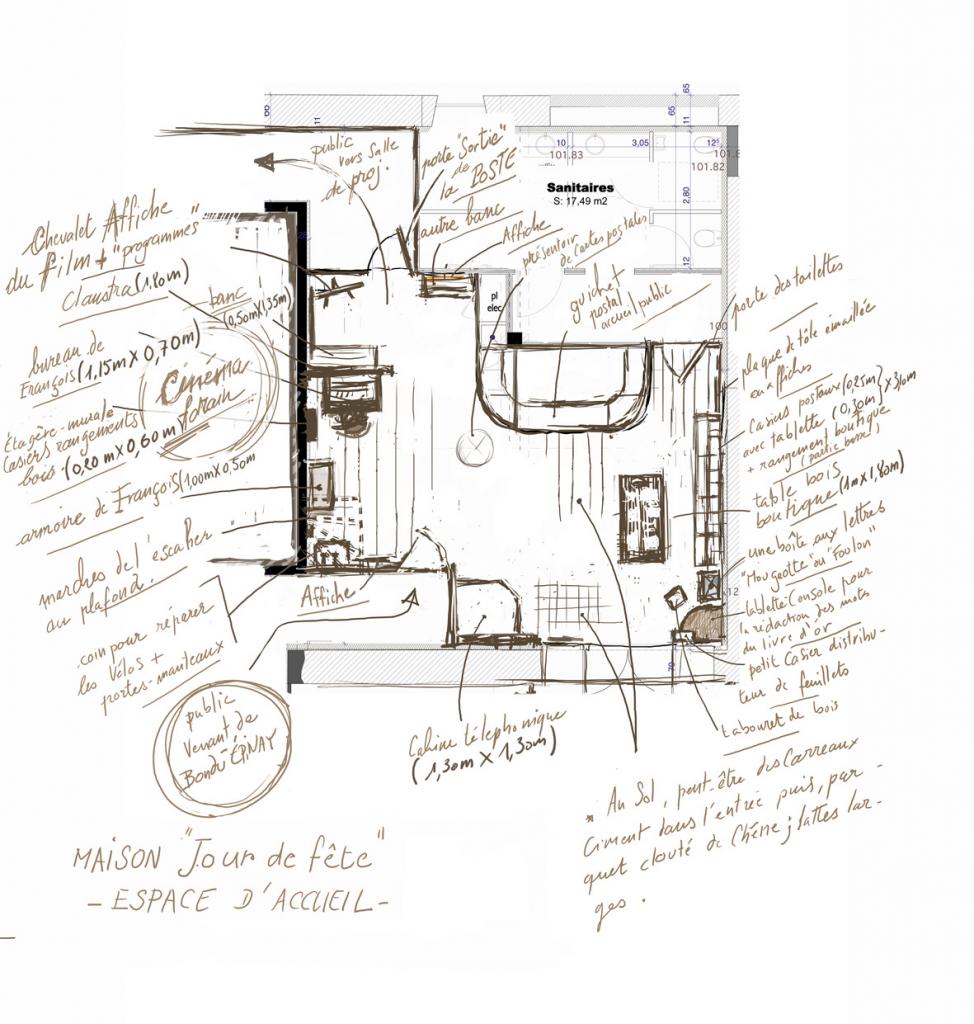 65
65
11
11
10
3,05
12⁵
101.83
101.82
Sanitaires
S: 17,49 m2
2,80
12
public
vers Salle
de proj.
porte "Sortie"
de
la POSTE
autre banc
Affiche
présentoir
de cartes postales
guichet
postal
accueil public
pl
elec
porte des toilettes
Chevalet Affiche
du film + "progammes"
Claustra (1.80m)
banc
(0,50mX1,35m)
bureau de
François (1,15m X 0,70m)
Cinéma
forain
Étagère-murale
Casiers rangements
bois (0,20 m X 0,60m)
armoire de François (1,00m X 0,50m)
marches de l'escalier
au plafond.
coin pour réparer
les vélos +
portes-manteaux
Affiche
public
venant de
Bondu ÉPINAY
plaque de tôle émaillée
en affiches
Casiers postaux (0,25m) X 3,10m
avec tablette (0,30m)
+ rangement boutique
(partie basse)
table bois
boutique (1m X 1,80m)
une boîte aux lettres
"Mougeotte" ou "Foulon"
tablette console pour
la rédaction des mots
du livre d'or
petit Casier distribu-
teur de feuillets
tabouret de bois
12
Cabine téléphonique
(1,30m X 1,30m)
* Au Sol, peut-être des Carreaux
Ciment dans l'entrée puis, par-
quet clouté de Chêne ; lattes lar-
ges.
MAISON "Jour de fête"
- ESPACE D'ACCUEIL -